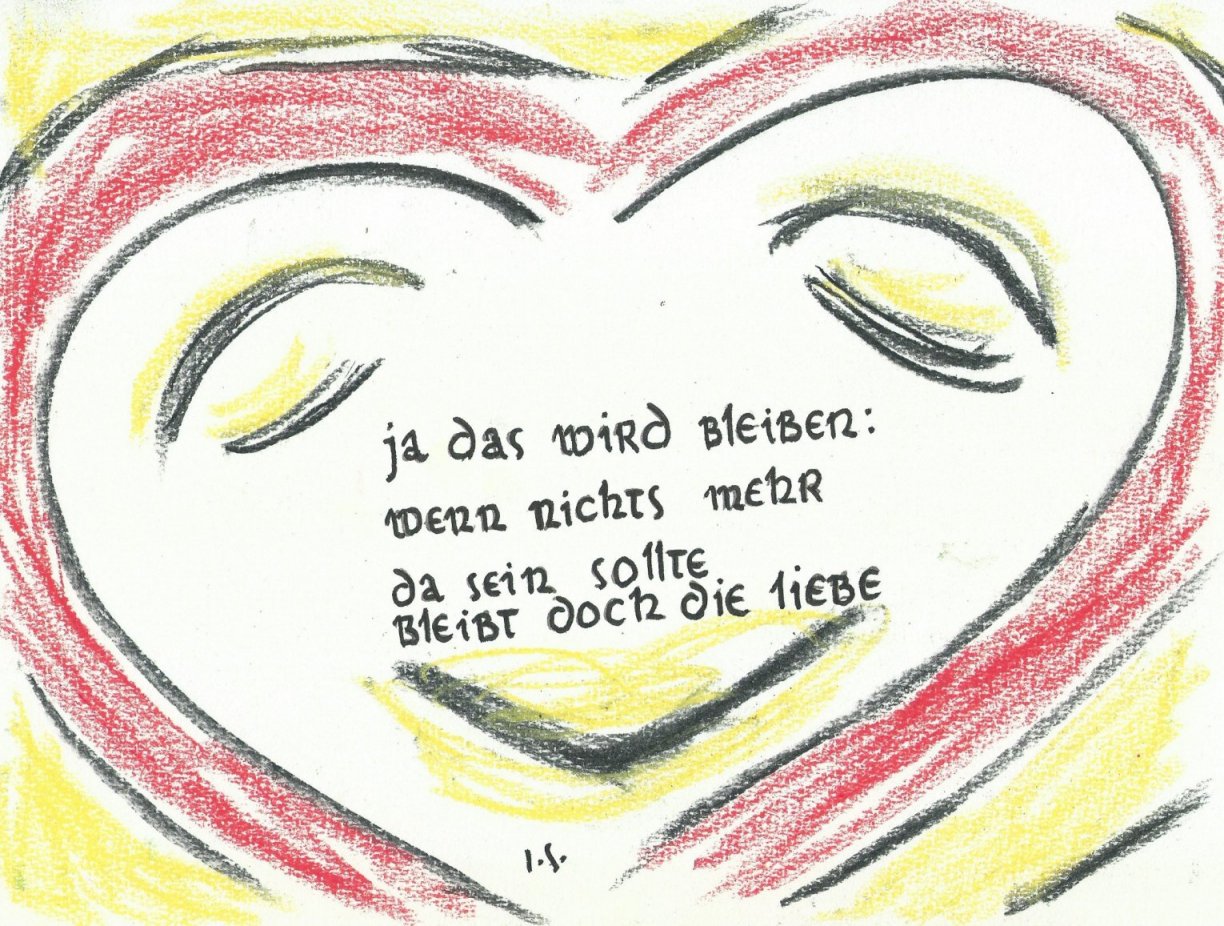 ja das wird bleiben:
wenn nichts mehr
da sein sollte
bleibt doch die liebe
I.S.